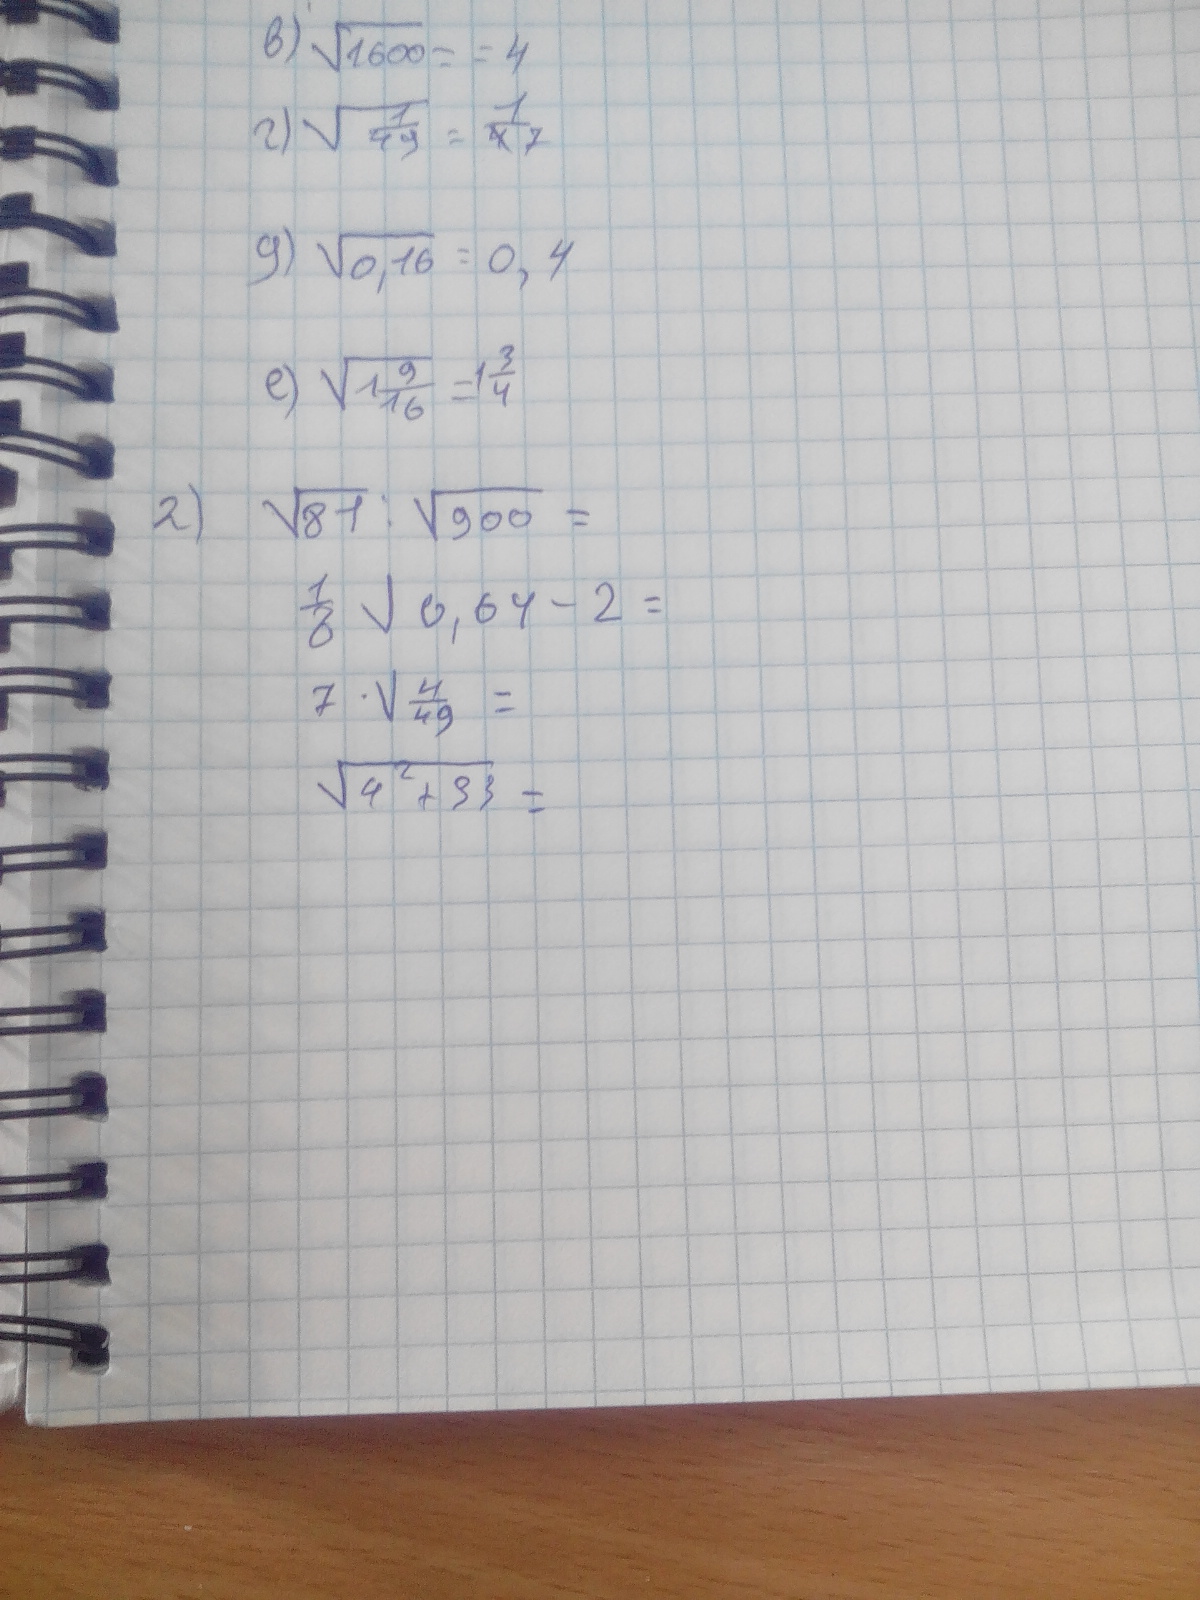 в) √1600 = = 4
г) √1/49 = 1/7
д) √0,16 = 0,4
е) √1 9/16 = 1 3/4
2) √81 : √900 =
1/8 √0,64 - 2 =
7 · √4/49 =
√4² + 33 =